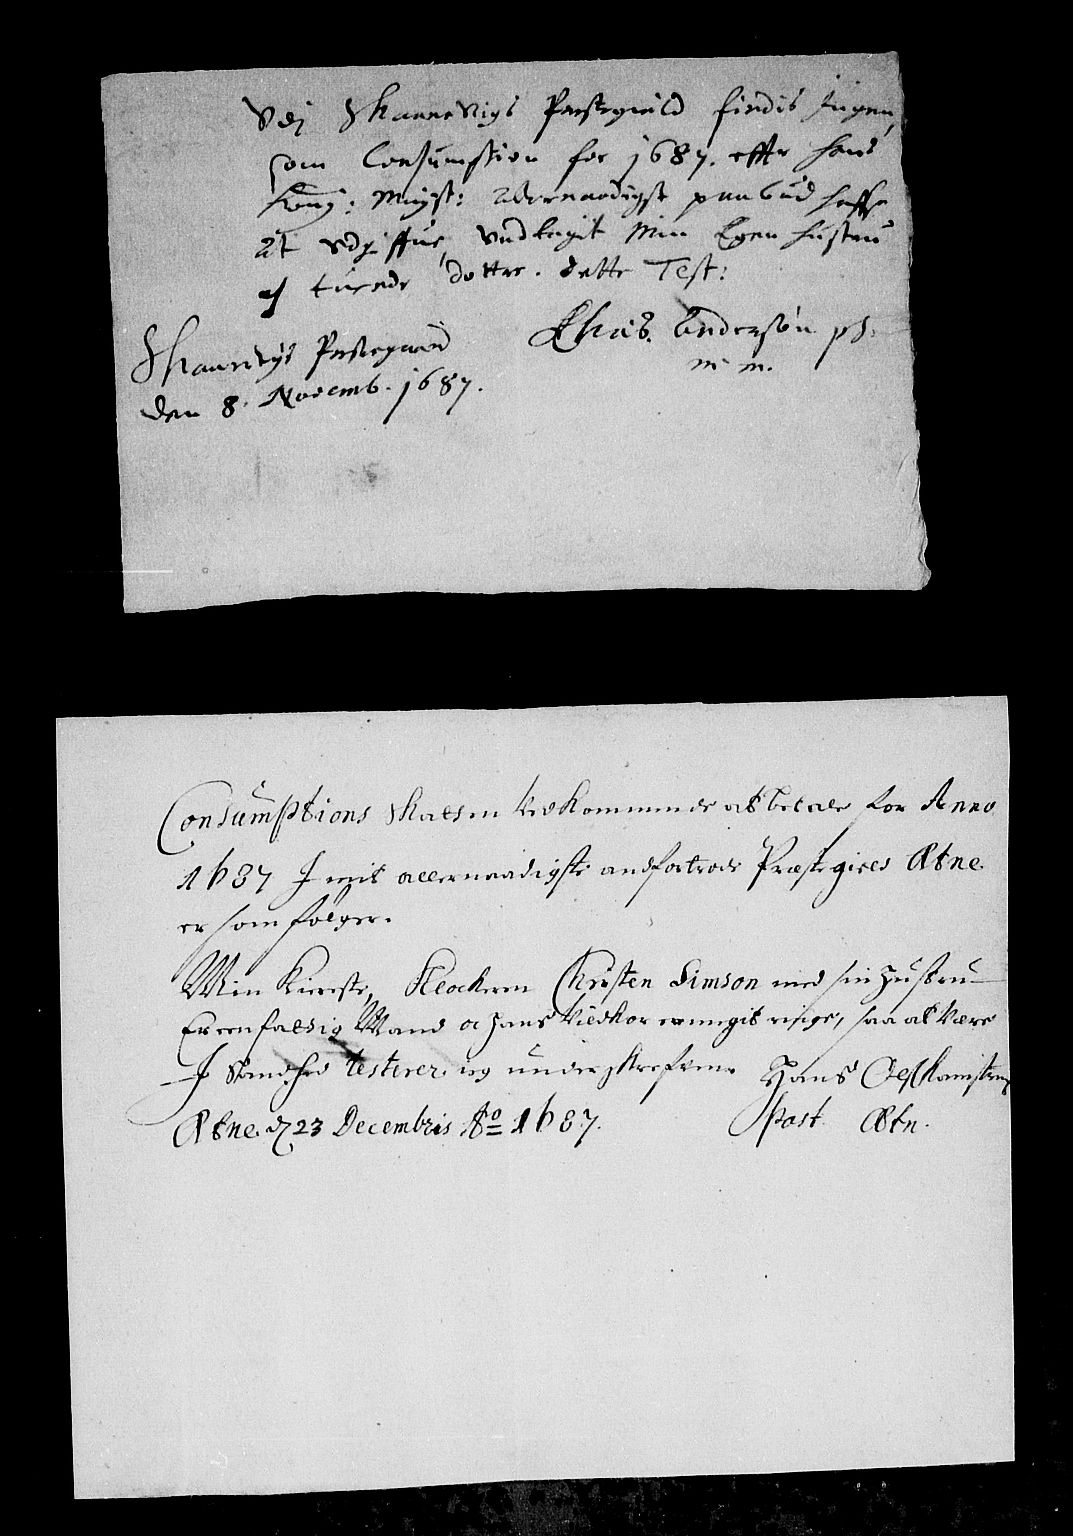 Vdj Skannevigs Prestegield findis Ingen,
som Consumstion for 1687. effter hans
Kong: Mayst: Allernaadigst paabud haffr
At vdgiffue, undtagit Min Egen hustru
oc tuende dottre. dette Test:
Skannevigs Prestegaard
den 8. Novemb. 1687.
Anderssøn pt.
m m.
Consumptions Skatten Vedkommende at betale for Anno
1687 J mit allernaadigste andfortrode Præstegield Øtne
er som følger.
Min Kiereste, Klockeren Christen Simson med sin Hustru
Er een fattig Mand oc hans Vilckor er meget ringe, saa at være
J Sandhed testerer ieg underskrefven. Hans
Øtne d 23 Decembris Ao 1687.
Past Øtn.